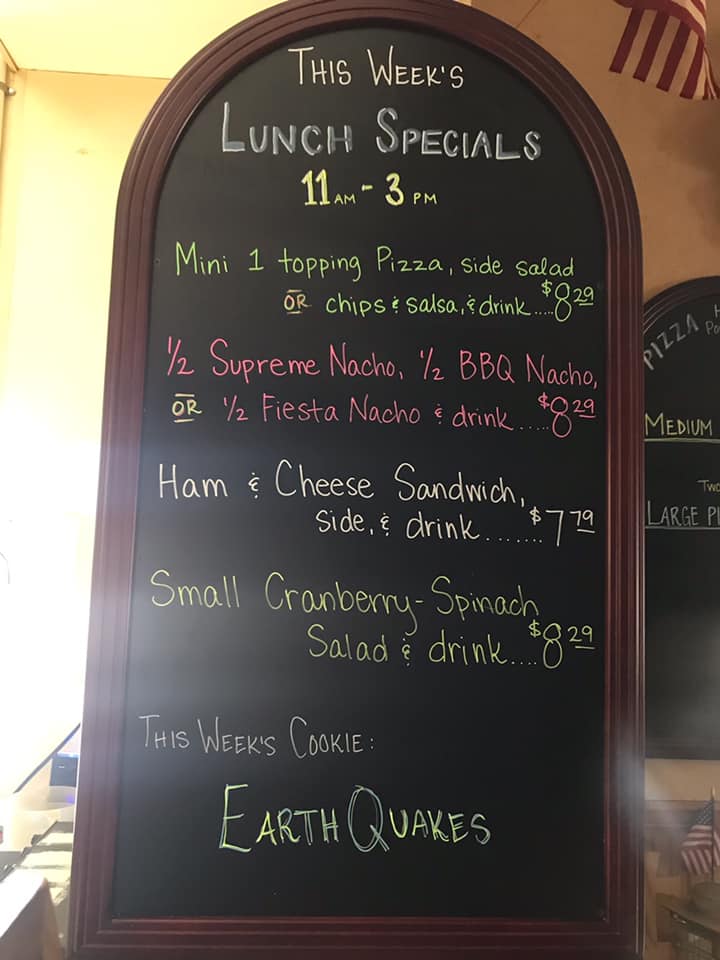 THIS WEEK'S
LUNCH SPECIALS
11 AM - 3 PM
Mini 1 topping Pizza, side salad
OR chips & salsa, & drink.... $8.29
1/2 Supreme Nacho, 1/2 BBQ Nacho,
OR 1/2 Fiesta Nacho & drink..... $8.29
Ham & Cheese Sandwich,
Side, & drink....... $7.79
Small Cranberry-Spinach
Salad & drink.... $8.29
THIS WEEK'S COOKIE:
EARTHQUAKES
PIZZA
MEDIUM
LARGE